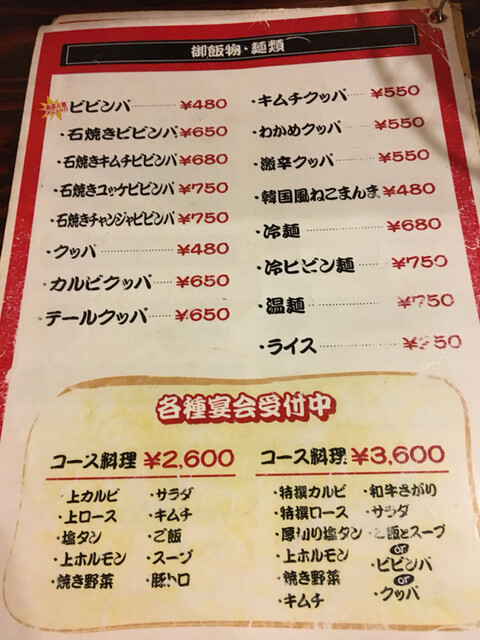 御飯物・麺類
ビビンバ ¥480
・石焼きビビンバ ¥650
・石焼きキムチビビンバ ¥680
・石焼きユッケビビンバ ¥750
・石焼きチャンジャビビンバ ¥750
・クッパ ¥480
・カルビクッパ ¥650
・テールクッパ ¥650
・キムチクッパ ¥550
・わかめクッパ ¥550
・激辛クッパ ¥550
・韓国風ねこまんま ¥480
・冷麺 ¥680
・冷ビビン麺 ¥750
・温麺 ¥750
・ライス
各種宴会受付中
コース料理 ¥2,600
・上カルビ
・上ロース
・塩タン
・上ホルモン
・焼き野菜
・サラダ
・キムチ
・ご飯
・スープ
・豚トロ
コース料理 ¥3,600
・特撰カルビ
・特撰ロース
・厚切り塩タン
・上ホルモン
・焼き野菜
・キムチ
・和牛さがり
・サラダ
・ご飯とスープ
or
・ビビンバ
or
・クッパ